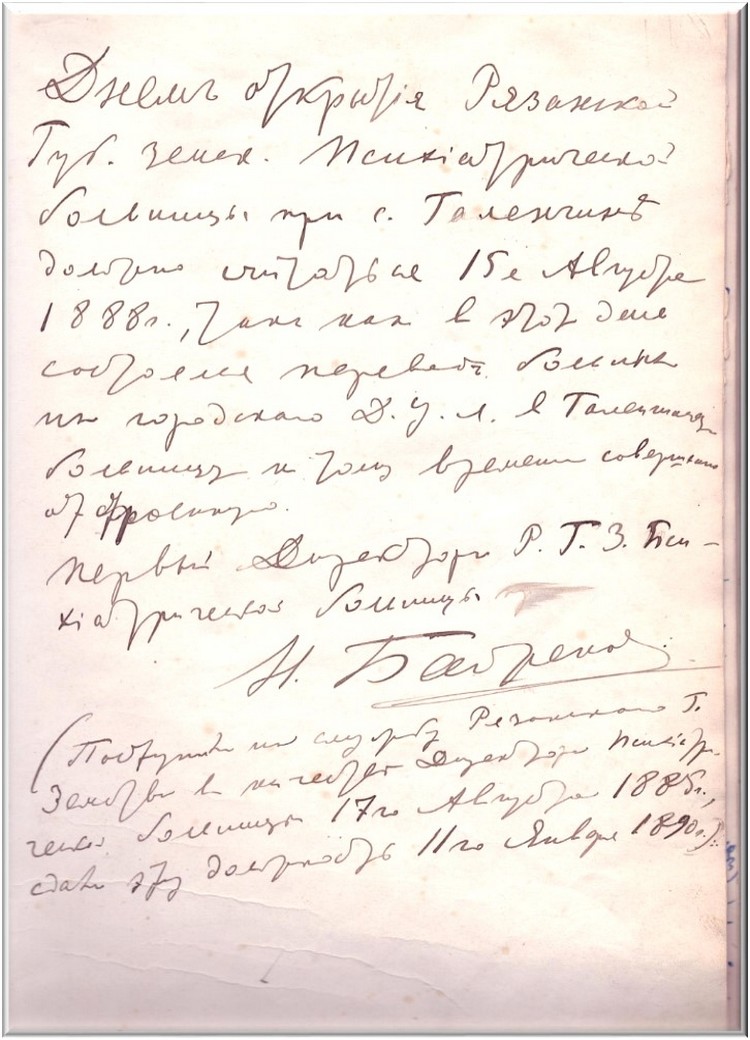 Днемъ открытiя Рязанской
Губ. земск. Психiатрической
больницы при с. Галенчинѣ
должно считаться 15е Августа
1888г., такъ какъ в этот день
состоялся переводъ больных
из городскаго Д. У. Л. в Галенчинскую
больницу к тому времени совершенно
отстроенную.
Первый Директоръ Р. Г. З. Пси-
хiатрической больницы
Н. Баженов
(Поступилъ на службу Рязанскаго Г.
Земства в качестве Директора Психiатри-
ческой больницы 17го Августа 1885г.,
сдалъ эту должность 11го Января 1890г.).